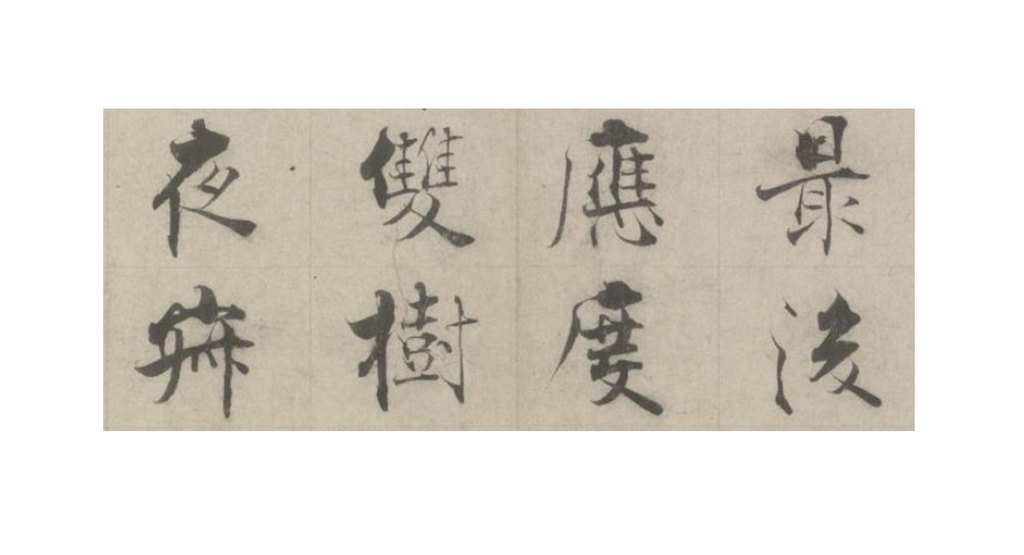 最後
應度
雙樹
夜寂